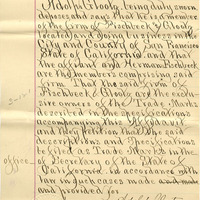 Adolph Glootz being duly sworn
deposes and says that he is a member
of the firm of Fischbeck & Glootz
located and doing business in the
City and County of San Francisco
State of California and that
the affiant and Herman Fischbeck
are the members comprising said
firm. That the said firm of
Fischbeck & Glootz are the exclu-
sive owners of the Trade-Marks
described in the specifications
accompanying this
and they petition that the said
descriptions and specifications
be filed as Trade Marks in the
office of Secretary of the State of
California in accordance with
law in such cases made
and provided for